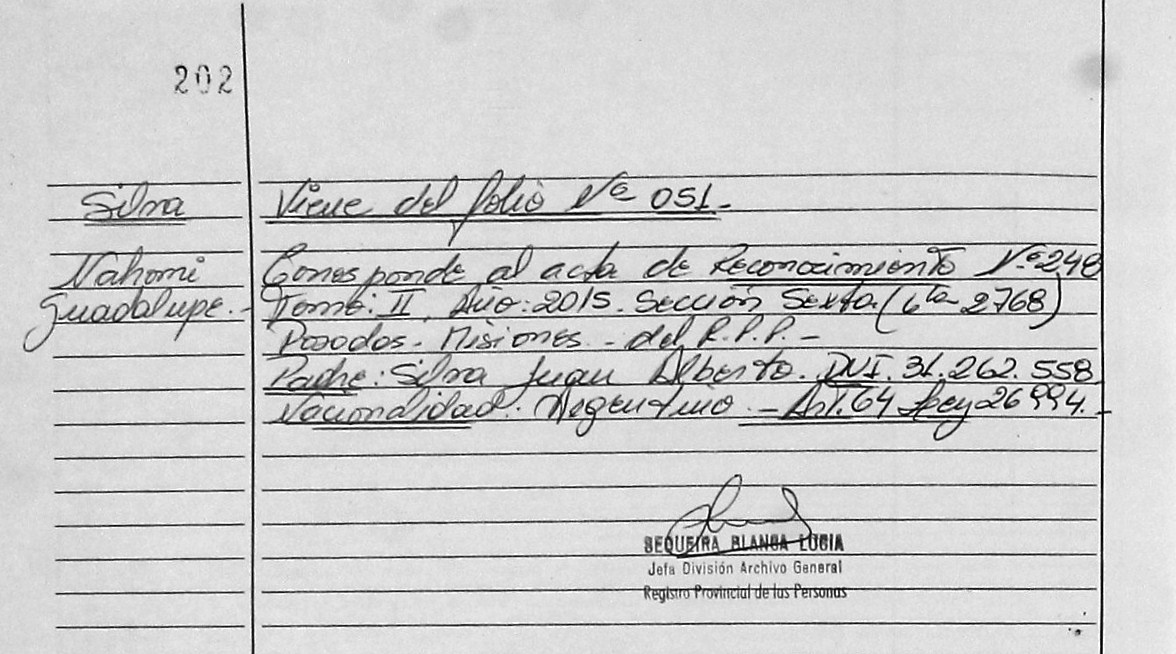 202
Silva
Viene del folio Nº 051.-
Nahomi
Guadalupe.-
Corresponde al acta de Reconocimiento Nº 248
Tomo: II. Año: 2015. Sección Sexta (6ta 2768)
Posadas - Misiones - del R.P.P. -
Padre: Silva Juan Alberto. DNI. 31.262.558
Nacionalidad: Argentino. - Art. 64 Ley 26994. -
SEQUEIRA BLANCA LUCIA
Jefa División Archivo General
Registro Provincial de las Personas